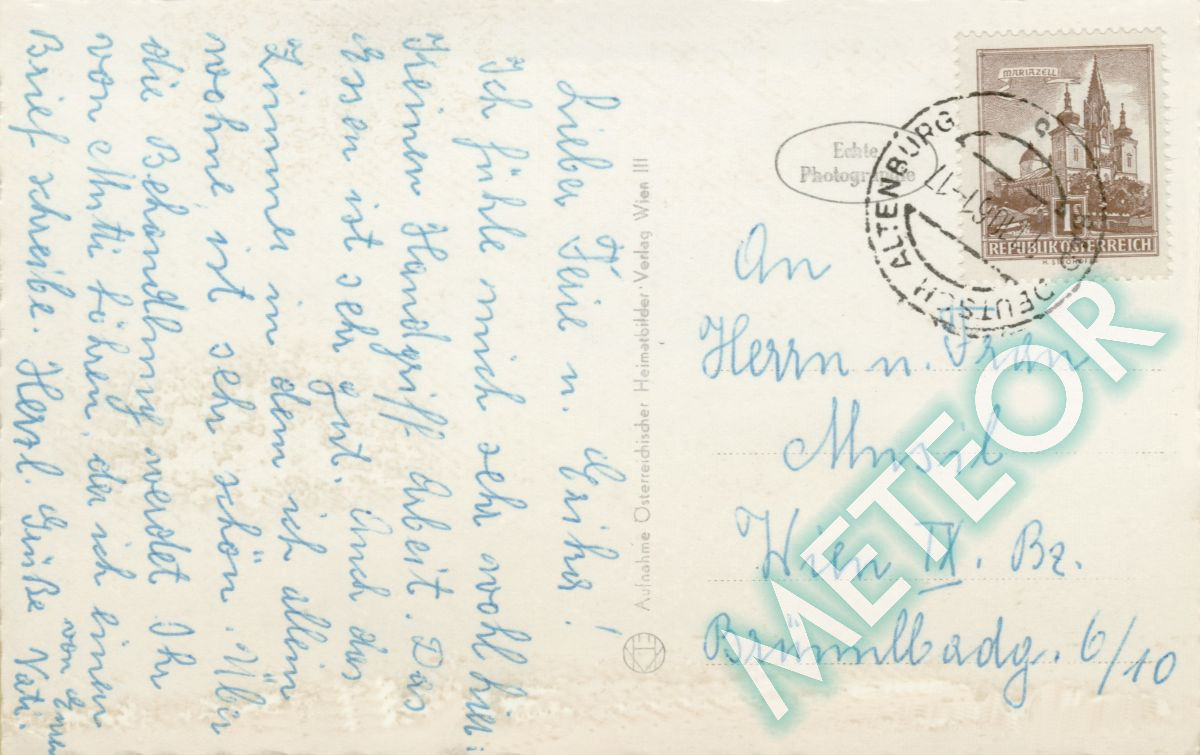 Lieber Ferie u. Erika!
Ich fühle mich sehr wohl hier:
Keinen Handgriff Arbeit. Das
Essen ist sehr gut. Auch das
Zimmer in dem ich allein
wohne ist sehr schön. Über
die Behandlung werdet Ihr
von Mutti hören, der ich einen
Brief schreibe. Herzl. Grüße Vati.
Aufnahme Österreichischer Heimatbilder Verlag Wien III
Echte
Photographie
MARIAZELL
1S
REPUBLIK ÖSTERREICH
DEUTSCH ALTENBURG
An
Herrn u. Frau
Musil
Wien IX. Bz.
Brünnlbadg. 6/10
METEOR